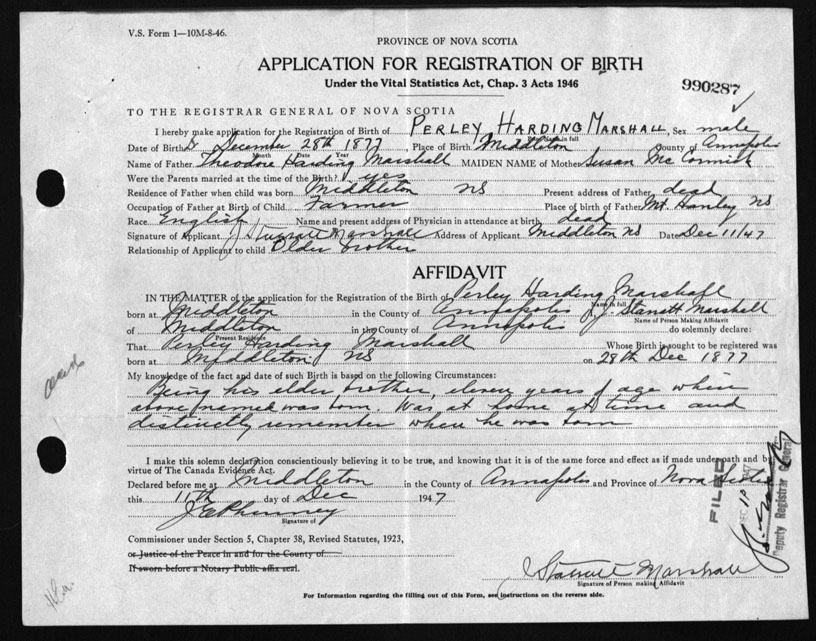 V.S. Form 1—10M-8-46.
PROVINCE OF NOVA SCOTIA
APPLICATION FOR REGISTRATION OF BIRTH
Under the Vital Statistics Act, Chap. 3 Acts 1946
990287
TO THE REGISTRAR GENERAL OF NOVA SCOTIA
I hereby make application for the Registration of Birth of PERLEY HARDING MARSHALL, Sex male
Name in full
Date of Birth December 28th 1877, Place of Birth Middleton County of Annapolis
Month Date Year
Name of Father Theodore Harding Marshall MAIDEN NAME of Mother Susan McCormick
Were the Parents married at the time of the Birth? yes
Residence of Father when child was born Middleton NS Present address of Father dead
Occupation of Father at Birth of Child Farmer Place of birth of Father Mt. Hanley NS
Race English Name and present address of Physician in attendance at birth dead
Signature of Applicant J Starratt Marshall Address of Applicant Middleton NS Date Dec 11/47
Relationship of Applicant to child Older brother
AFFIDAVIT
IN THE MATTER of the application for the Registration of the Birth of Perley Harding Marshall
Name in full
born at Middleton in the County of Annapolis I, J. Starratt Marshall
Name of Person Making Affidavit
of Middleton in the County of Annapolis do solemnly declare:
Present Residence
That Perley Harding Marshall Whose Birth is sought to be registered was
born at Middleton NS on 28th Dec 1877
My knowledge of the fact and date of such Birth is based on the following Circumstances:
Being his elder brother, eleven years of age when
above named was born. Was at home at time and
distinctly remember when he was born
I make this solemn declaration conscientiously believing it to be true, and knowing that it is of the same force and effect as if made under oath and by
virtue of The Canada Evidence Act.
Declared before me at Middleton in the County of Annapolis and Province of Nova Scotia
this 11th day of Dec 1947
J E Phinney
Signature of
Commissioner under Section 5, Chapter 38, Revised Statutes, 1923,
or Justice of the Peace in and for the County of
If sworn before a Notary Public affix seal.
Starratt Marshall
Signature of Person making Affidavit
For Information regarding the filling out of this Form, see instructions on the reverse side.
FILED
Deputy Registrar General